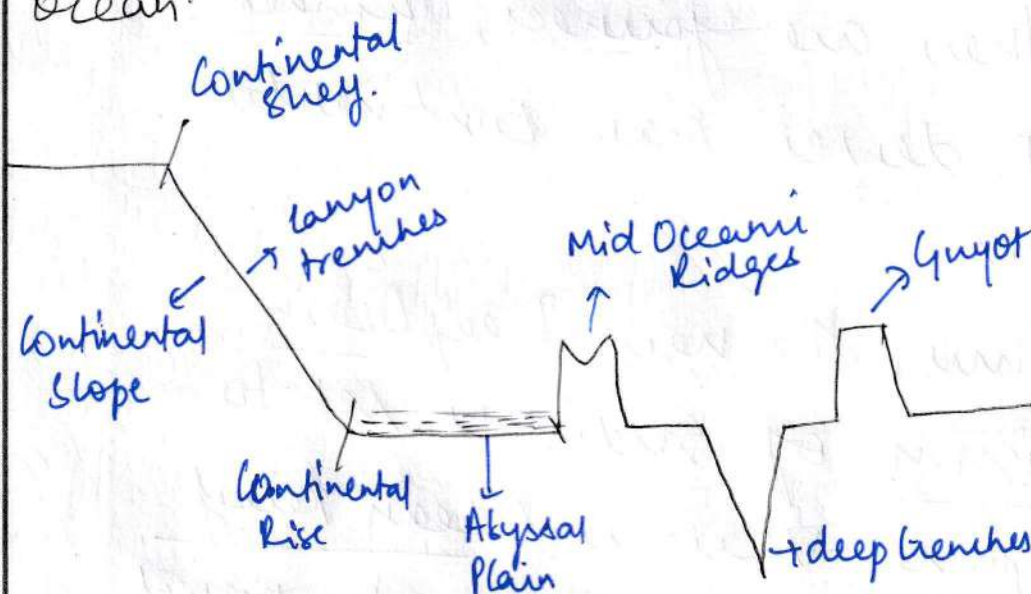 Ocean.
Continental
Shelf.
Canyon
trenches
Continental
Slope
Mid Oceanic
Ridges
Guyot
Continental
Rise
Abyssal
Plain
deep trenches